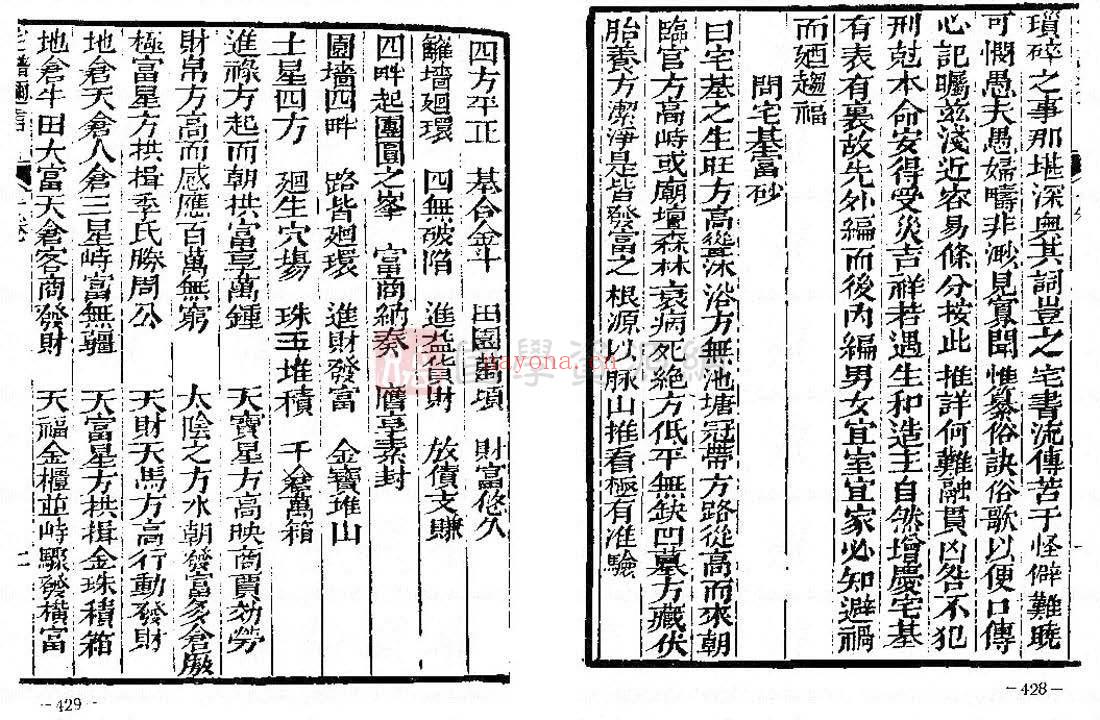 瑣碎之事那堪深奥其詞豈之宅書流傳苦于怪僻難曉
可憫愚夫愚婦疇非渺見寡聞惟纂俗訣俗歌以便口傳
心記曯茲淺近容易條分按此推詳何難融貫凶咎不犯
刑尅本命安得受災吉祥若遇生和造主自然增慶宅基
有表有裏故先外編而後内編男女宜室宜家必知避禍
而廼趨福
問宅基富砂
曰宅基之生旺方高聳沐浴方無池塘冠帶方路從高而來朝
臨官方高峙或廟壇森林衰病死絶方低平無缺凹墓方藏伏
胎養方潔淨是皆發富之根源以脉山推看極有准驗
－428－
四方平正 基合金斗 田園萬項 財富悠久
籬墻廻環 四無破陷 進益貨財 放債支賺
四畔起團圓之峯 富商納奏 贋享素封
園墻四畔 路皆廻環 進財發富 金寶堆山
土星四方 廻生穴塲 珠玉堆積 千倉萬箱
進祿方起而朝拱富享萬鍾 天寶星方高映商賈効勞
財帛方高而感應百萬無窮 太陰之方水朝發富多倉廒
極富星方拱揖季氏勝周公 天財天馬方高行動發財
地倉天倉人倉三星峙富無疆 天富星方拱揖金珠積箱
地倉牛田大富天倉客商發財 天福金櫃並峙驟發横富
－429－
nayona.cn